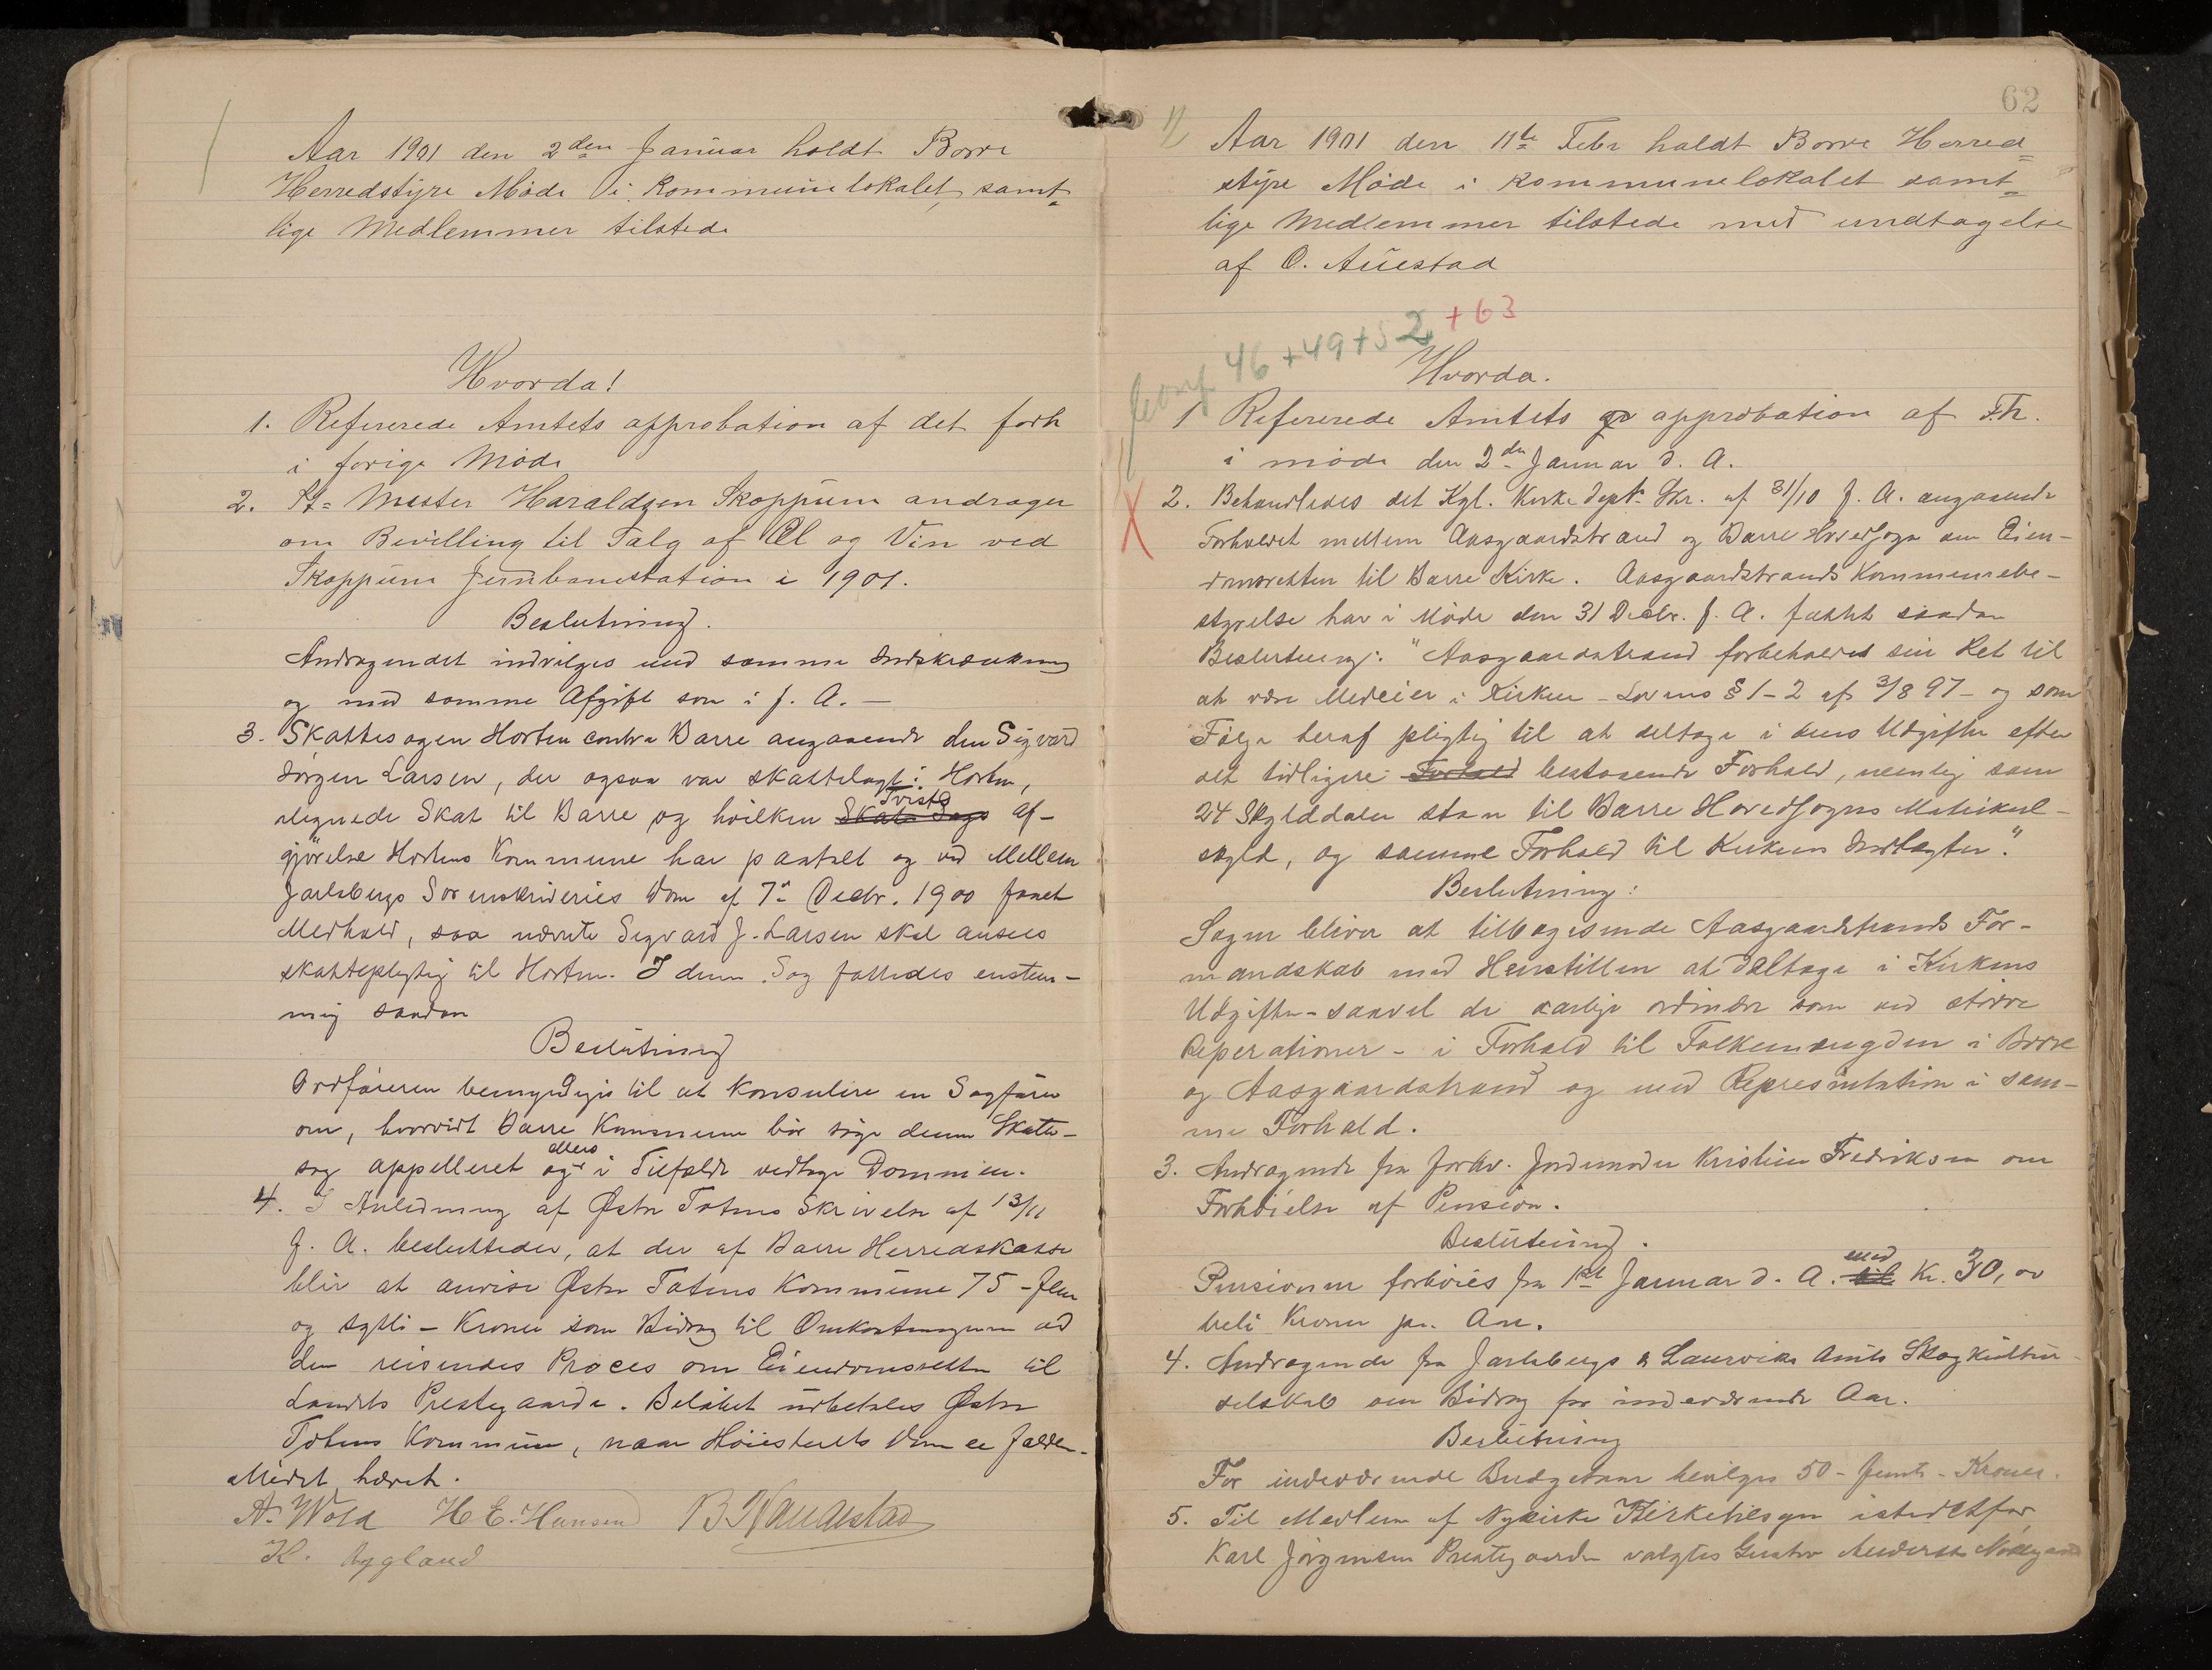 Aar 1901 den 2den Januar holdt Borre
Herredstyre Møde i kommunelokalet, samt=
lige Medlemmer tilstede
Hvorda!
1. Refererede Amtets approbation af det forh
i forige Møde
2. St= Mester Haraldsen Skoppum andrager
om Bevilling til Salg af Øl og Vin ved
Skoppum Jernbanestation i 1901.
Beslutning.
Andragendet indvilges med samme Indskrænkning
og med samme Afgift som i f. A. —
3. Skattesagen Horten contra Borre angaaende den Sigvard
Jørgen Larsen, der ogsaa var skattelagt i Horten,
ilignede Skat til Borre og hvilken Skats Sags Tvists af-
gjørelse Hortens Kommune har paatalt og ved Mellem
Jarlsbergs Sorenskriveries Dom af 7de Decbr. 1900 faaet
Medhold, saa nævnte Sigvard J. Larsen skal ansees
skattepligtig til Horten. I denne Sag fattedes enstem-
mig saadan
Beslutning
Ordføreren bemyndiges til at konsulere en Sagfører
om, hvorvidt Borre Kommune bør søge denne Skatte-
sag appelleret og ellers i Tilfælde vedtage Dommen.
4. I Anledning af Østre Totens Skrivelse af 13/11
f. A. besluttedes, at der af Borre Herredskasse
blir at anvise Østre Totens Kommune 75 - fem
og sytti - Kroner som Bidrag til Omkostningerne ved
den reisendes Proces om Eiendomsretten til
Landets Prestegaarde. Beløbet udbetales Østre
Totens Kommune, naar Høiesterets Dom er falden.
Mødet hævet.
A. Wold H E. Hansen B. Nandestad
K. Rygland
62
Aar 1901 den 11te Febr holdt Borre Herred=
styre Møde i kommunelokalet samt=
lige Medlemmer tilstede med undtagelse
af O. Auestad
46 + 49 + 52 + 63
Hvorda.
1 Refererede Amtets ap approbation af Fh.
i møde den 2den Januar d. A.
X
2. Behandledes det Kgl. Kirke dept. Skr. af 31/10 f. A. angaaende
Forholdet mellem Aasgaardstrand og Borre Hovedsogn om Eien-
domsretten til Borre Kirke. Aasgaardstrands Kommunebe-
styrelse har i Møde den 31 Decbr. f. A. fattet saadan
Beslutning: "Aasgaardstrand forbeholdes sin Ret til
at være Medeier i Kirken - Lovens § 1 - 2 af 3/8 97 - og som
Følge heraf pligtig til at deltage i dens Udgifter efter
det tidligere Forhold bestaaende Forhold, nemlig som
24 Skylddaler staar til Borre Hovedsogns Matrikul-
skyld, og samme Forhold til Kirkens Indtægter."
Beslutning:
Sagen bliver at tilbagesende Aasgaardstrands For-
mandskab med Henstillen at deltage i Kirkens
Udgifter - saavel de aarlige ordinære som ved større
Reperationer - i Forhold til Folkemængden i Borre
og Aasgaardstrand og med Representation i sam-
me Forhold.
3. Andragende fra forhv. Jordemoder Kristine Fredriksen om
Forhøielse af Pension.
Beslutning.
Pensionen forhøies fra 1ste Januar d. A. til med Kr. 30,00
treti Kroner pr. Aar.
4. Andragende fra Jarlsbergs & Laurviks Amts Skogkultur-
selskab om Bidrag for indeværende Aar.
Beslutning
For indeværende Budgetaar bevilges 50 - femti - Kroner.
5. Til Medlem af Nykirke Kirketilsyn istedetfor
Karl Jørgensen Prestegaarden valgtes Gustav Anderssen